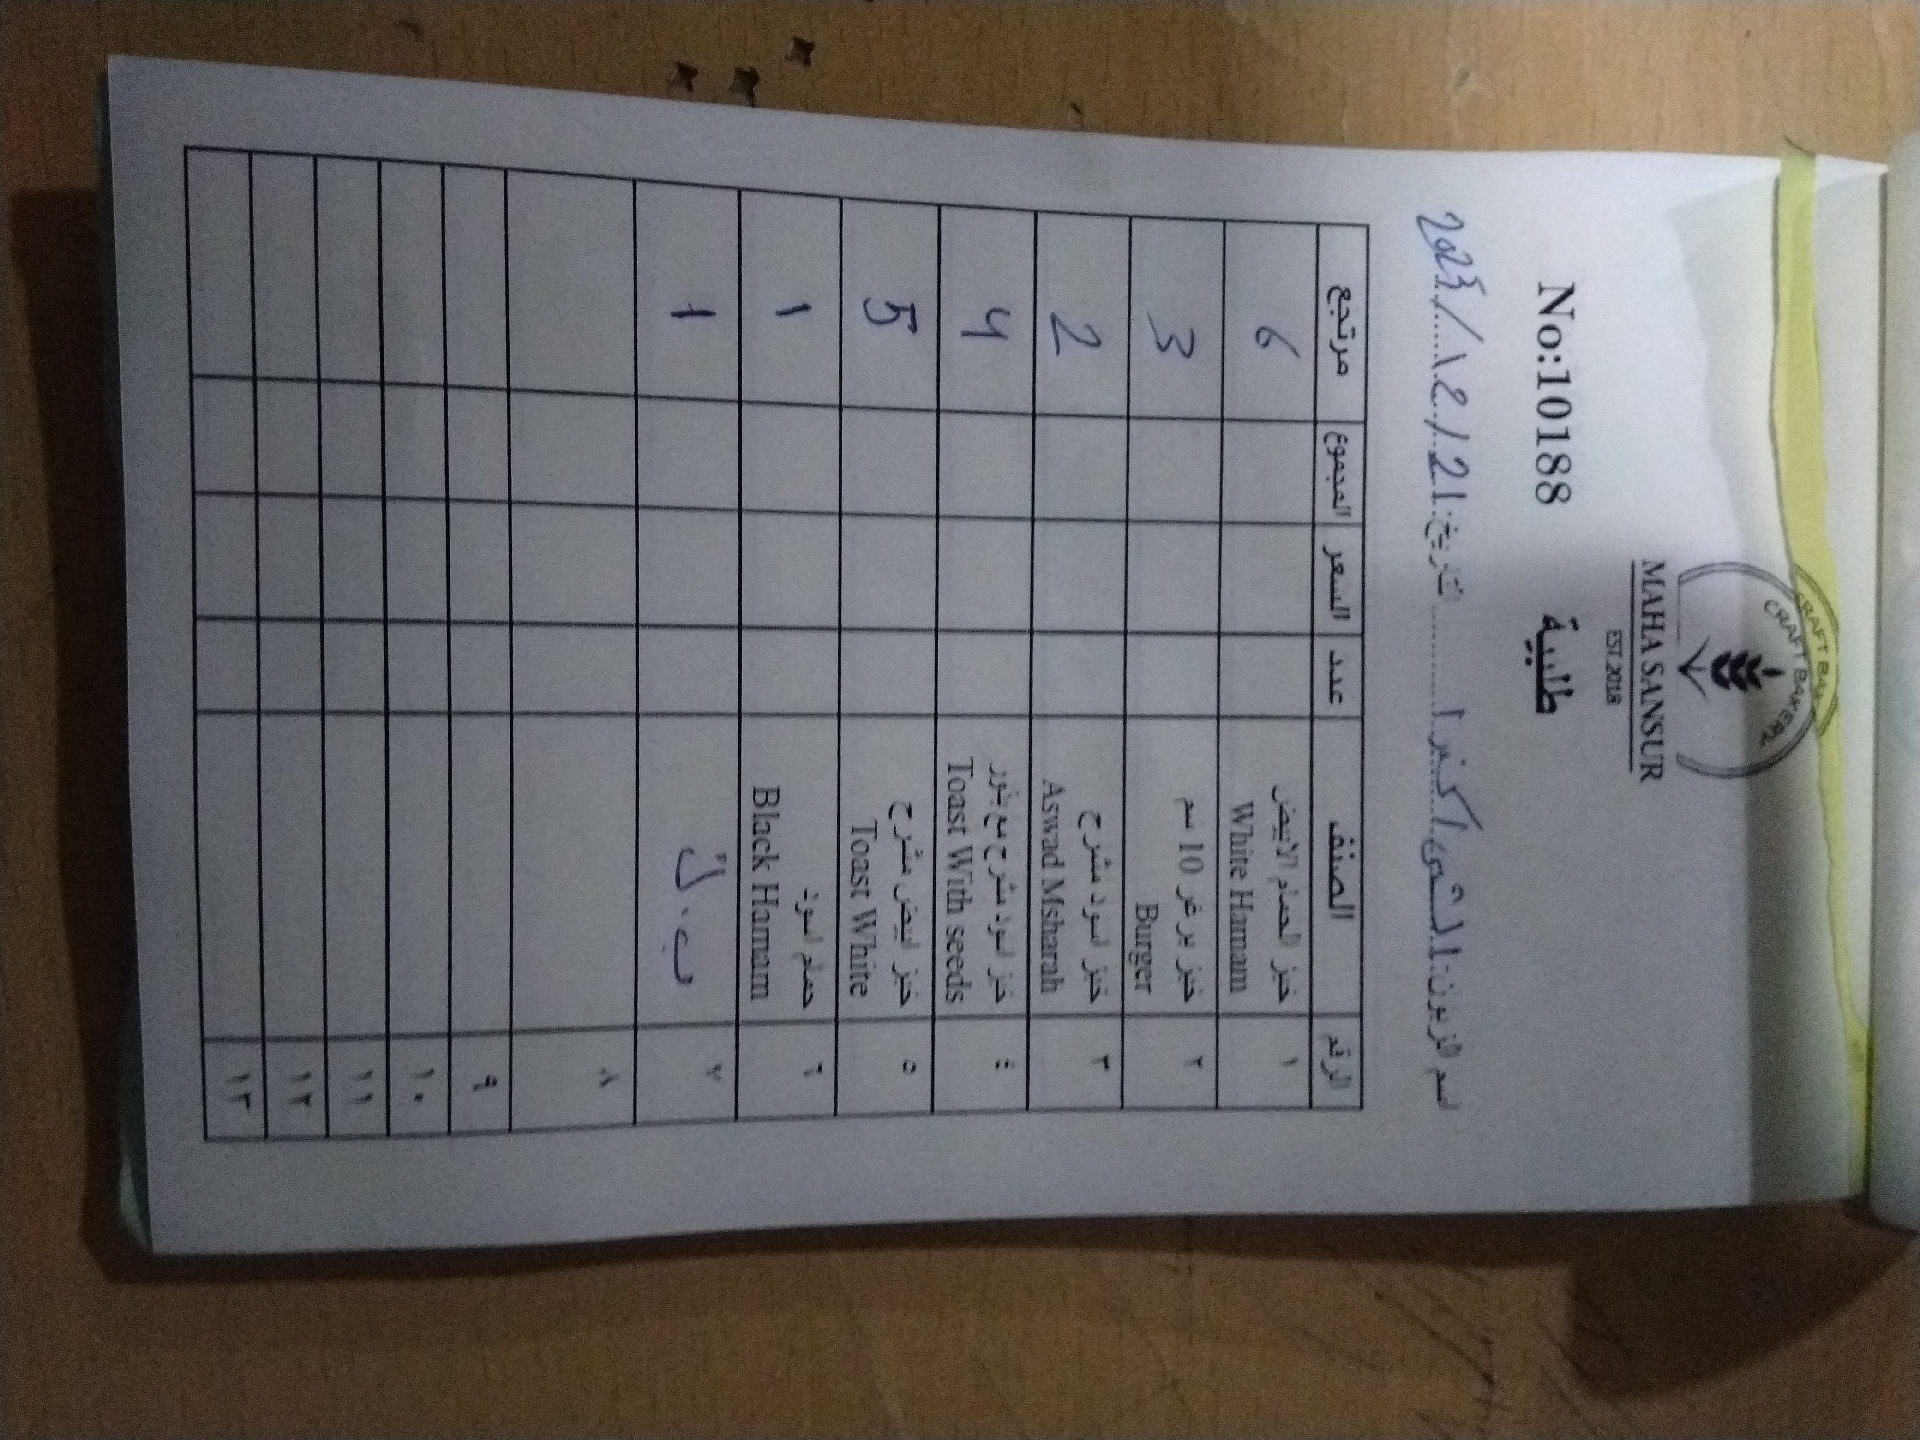 CRAFT BAK
CRAFT BAKERY
MAHA SANSUR
EST.2018
No:10188
طلبية
اسم الزبون: التاريخ: 21/12/2023
الرقم الصنف عدد السعر المجموع مرتجع
١ خبز الحمام الأبيض White Hamam 6
٢ خبز برغر 10 سم Burger 3
٣ خبز اسود مشرح Aswad Msharah 2
٤ خبز اسود مشرح مع بذور Toast With seeds 4
٥ خبز ابيض مشرح Toast White 5
٦ حمام اسود Black Hamam 1
٧ 1
٨
٩
١٠
١١
١٢
١٣